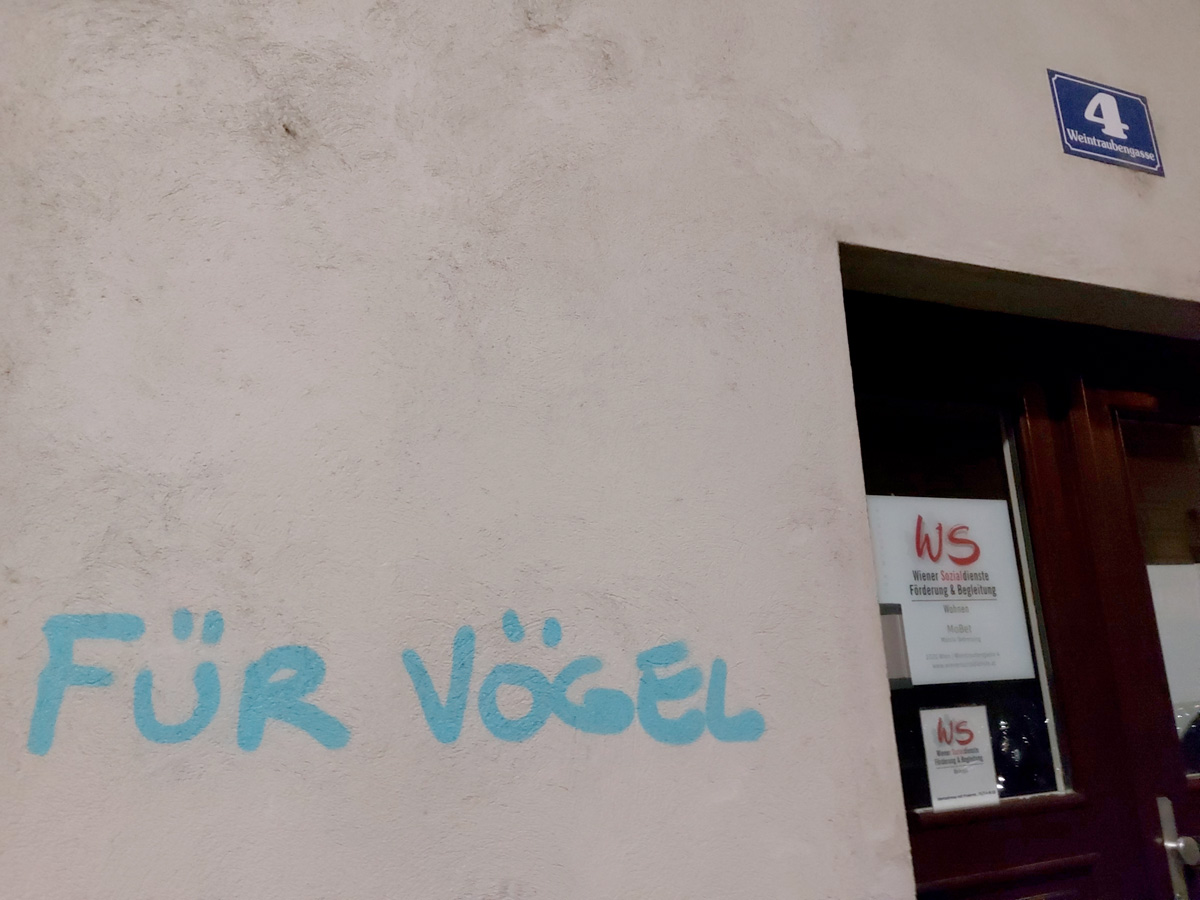 4
Weintraubengasse
FÜR VÖGEL
WS
Wiener Sozialdienste
Förderung & Begleitung
Wohnen
MoBet
WS
Wiener Sozialdienste
Förderung & Begleitung
Wohnen